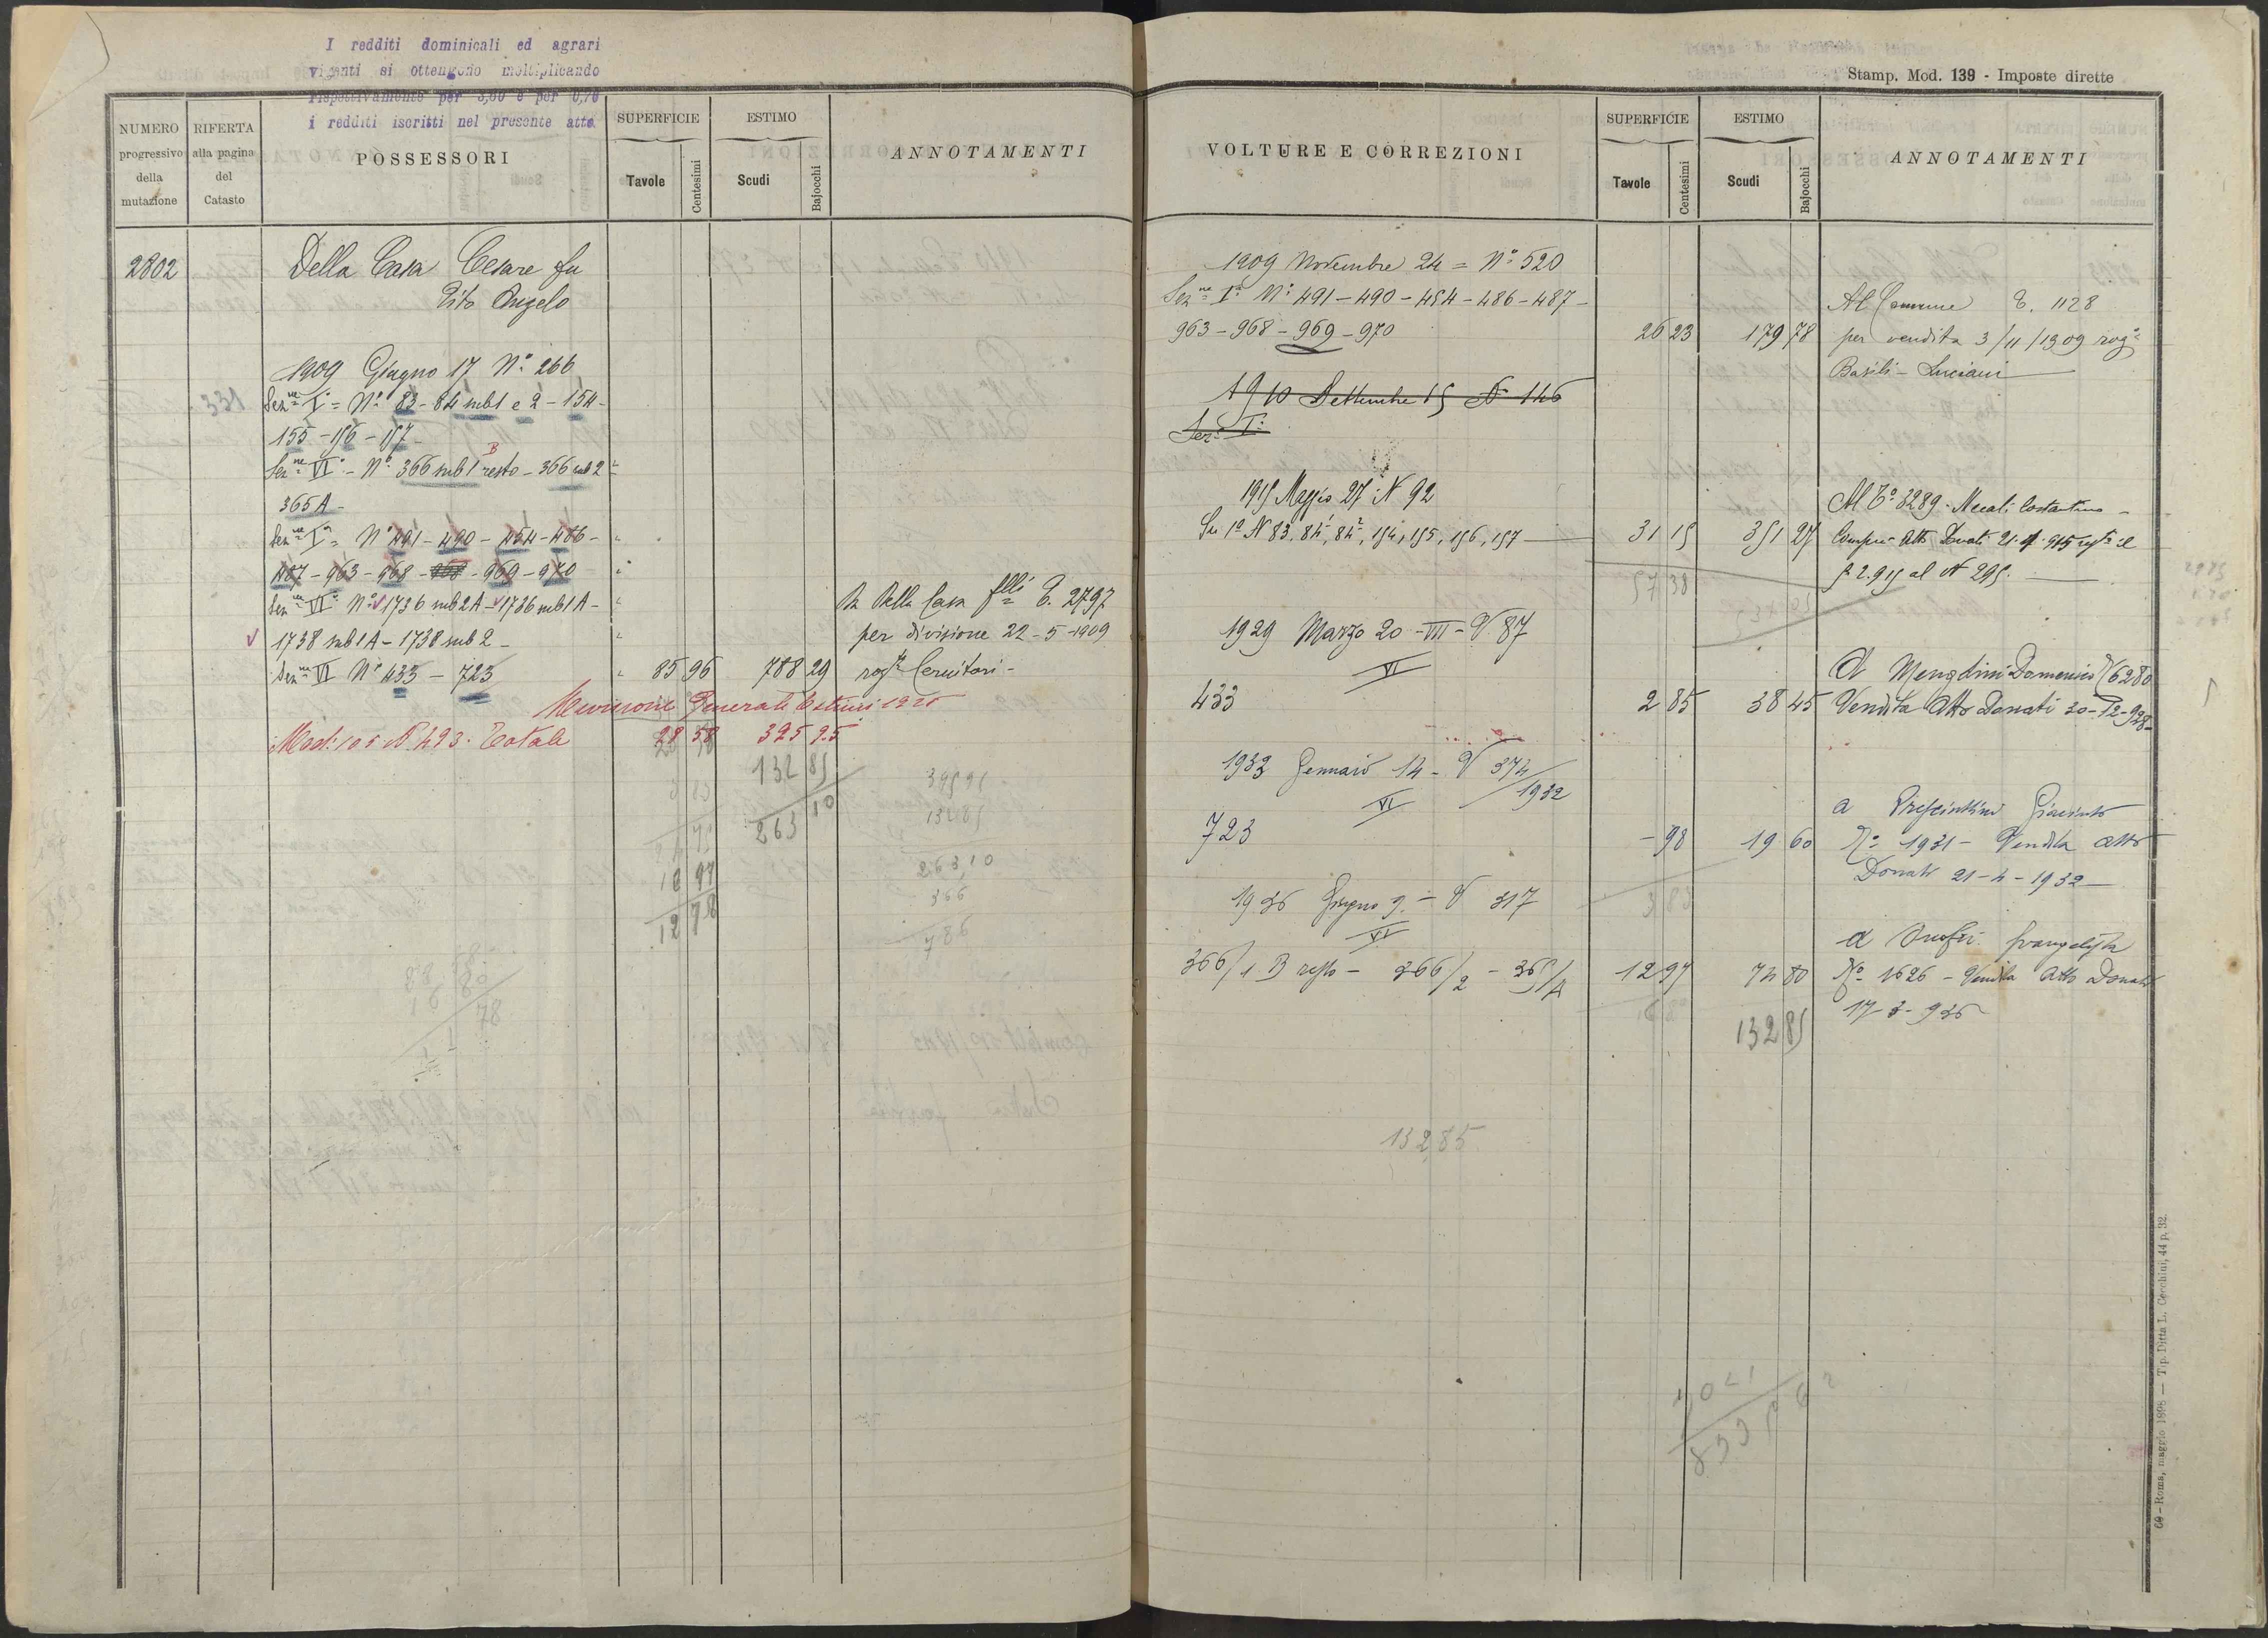 I redditi dominicali ed agrari
vigenti si ottengono moltiplicando
rispettivamente per 3,60 e per 0,70
i redditi iscritti nel presente atto.
NUMERO progressivo della mutazione
RIFERTA alla pagina del Catasto
POSSESSORI
SUPERFICIE
Tavole
Centesimi
ESTIMO
Scudi
Bajocchi
ANNOTAMENTI
2802
Della Casa Cesare fu
Vito Angelo
1909 Giugno 17 N° 266
331 Sezne I° = N° 83 - 84 sub 1 e 2 - 154 -
155 - 156 - 157 -
Sezne VI° - N° 366 sub 1 B resto - 366 sub 2
365 A -
Sezne I° = N° 491 - 490 - 454 - 486 -
487 - 963 - 968 - 968 - 969 - 970
Sezne VI° N° 1736 sub 2 A - 1736 sub 1 A -
1738 sub 1 A - 1738 sub 2 -
Sezne VI N° 433 - 723 85 96 788 29
Da Della Casa flli P. 2797
per divisione 22-5-1909
rogto
Revisione Generale Estimi 1926
Mod: 105 N 493. Totale 28 58 395 95
132 85
263 10
16 97
12 78
395 95
132 85
263,10
366
786
Stamp. Mod. 139 - Imposte dirette
VOLTURE E CORREZIONI
SUPERFICIE
Tavole
Centesimi
ESTIMO
Scudi
Bajocchi
ANNOTAMENTI
1909 Novembre 24 = N° 520
Sezne I° N° 491 - 490 - 454 - 486 - 487 -
963 - 968 - 969 - 970 26 23 179 78
Al Comune P. 1128
per vendita 3/11/1909 rog°
Basili - Luciani
1910 Settembre 15 N 146
Sez I°
1915 Maggio 27 N 92
Sez 1° N 83, 84 1, 84 2, 154, 155, 156, 157 31 15 351 27
57 38
Al P° 3289. Costantino
Atto Donati
al N 295.
1929 Marzo 20 - VII - V. 87
VI
433 2 85 38 45
A Domenico P 6280
Vendita Atto Donati 30-12-928
1933 Gennaio 14 - V 374/1932
VI
723 - 98 19 60
3 83
a Giacinto
P° 1931 - Vendita atto
Donati 21-4-1932
1936 Giugno 9. - V 317
VI
366/1 B resto - 366/2 - 365/A 12 97 74 80
132 85
a Onofri Evangelista
P° 1626 - Vendita Atto Donati
17-3-936
132,85
69 - Roma, maggio 1898 — Tip. Ditta L. Cecchini, 44 p. 32.